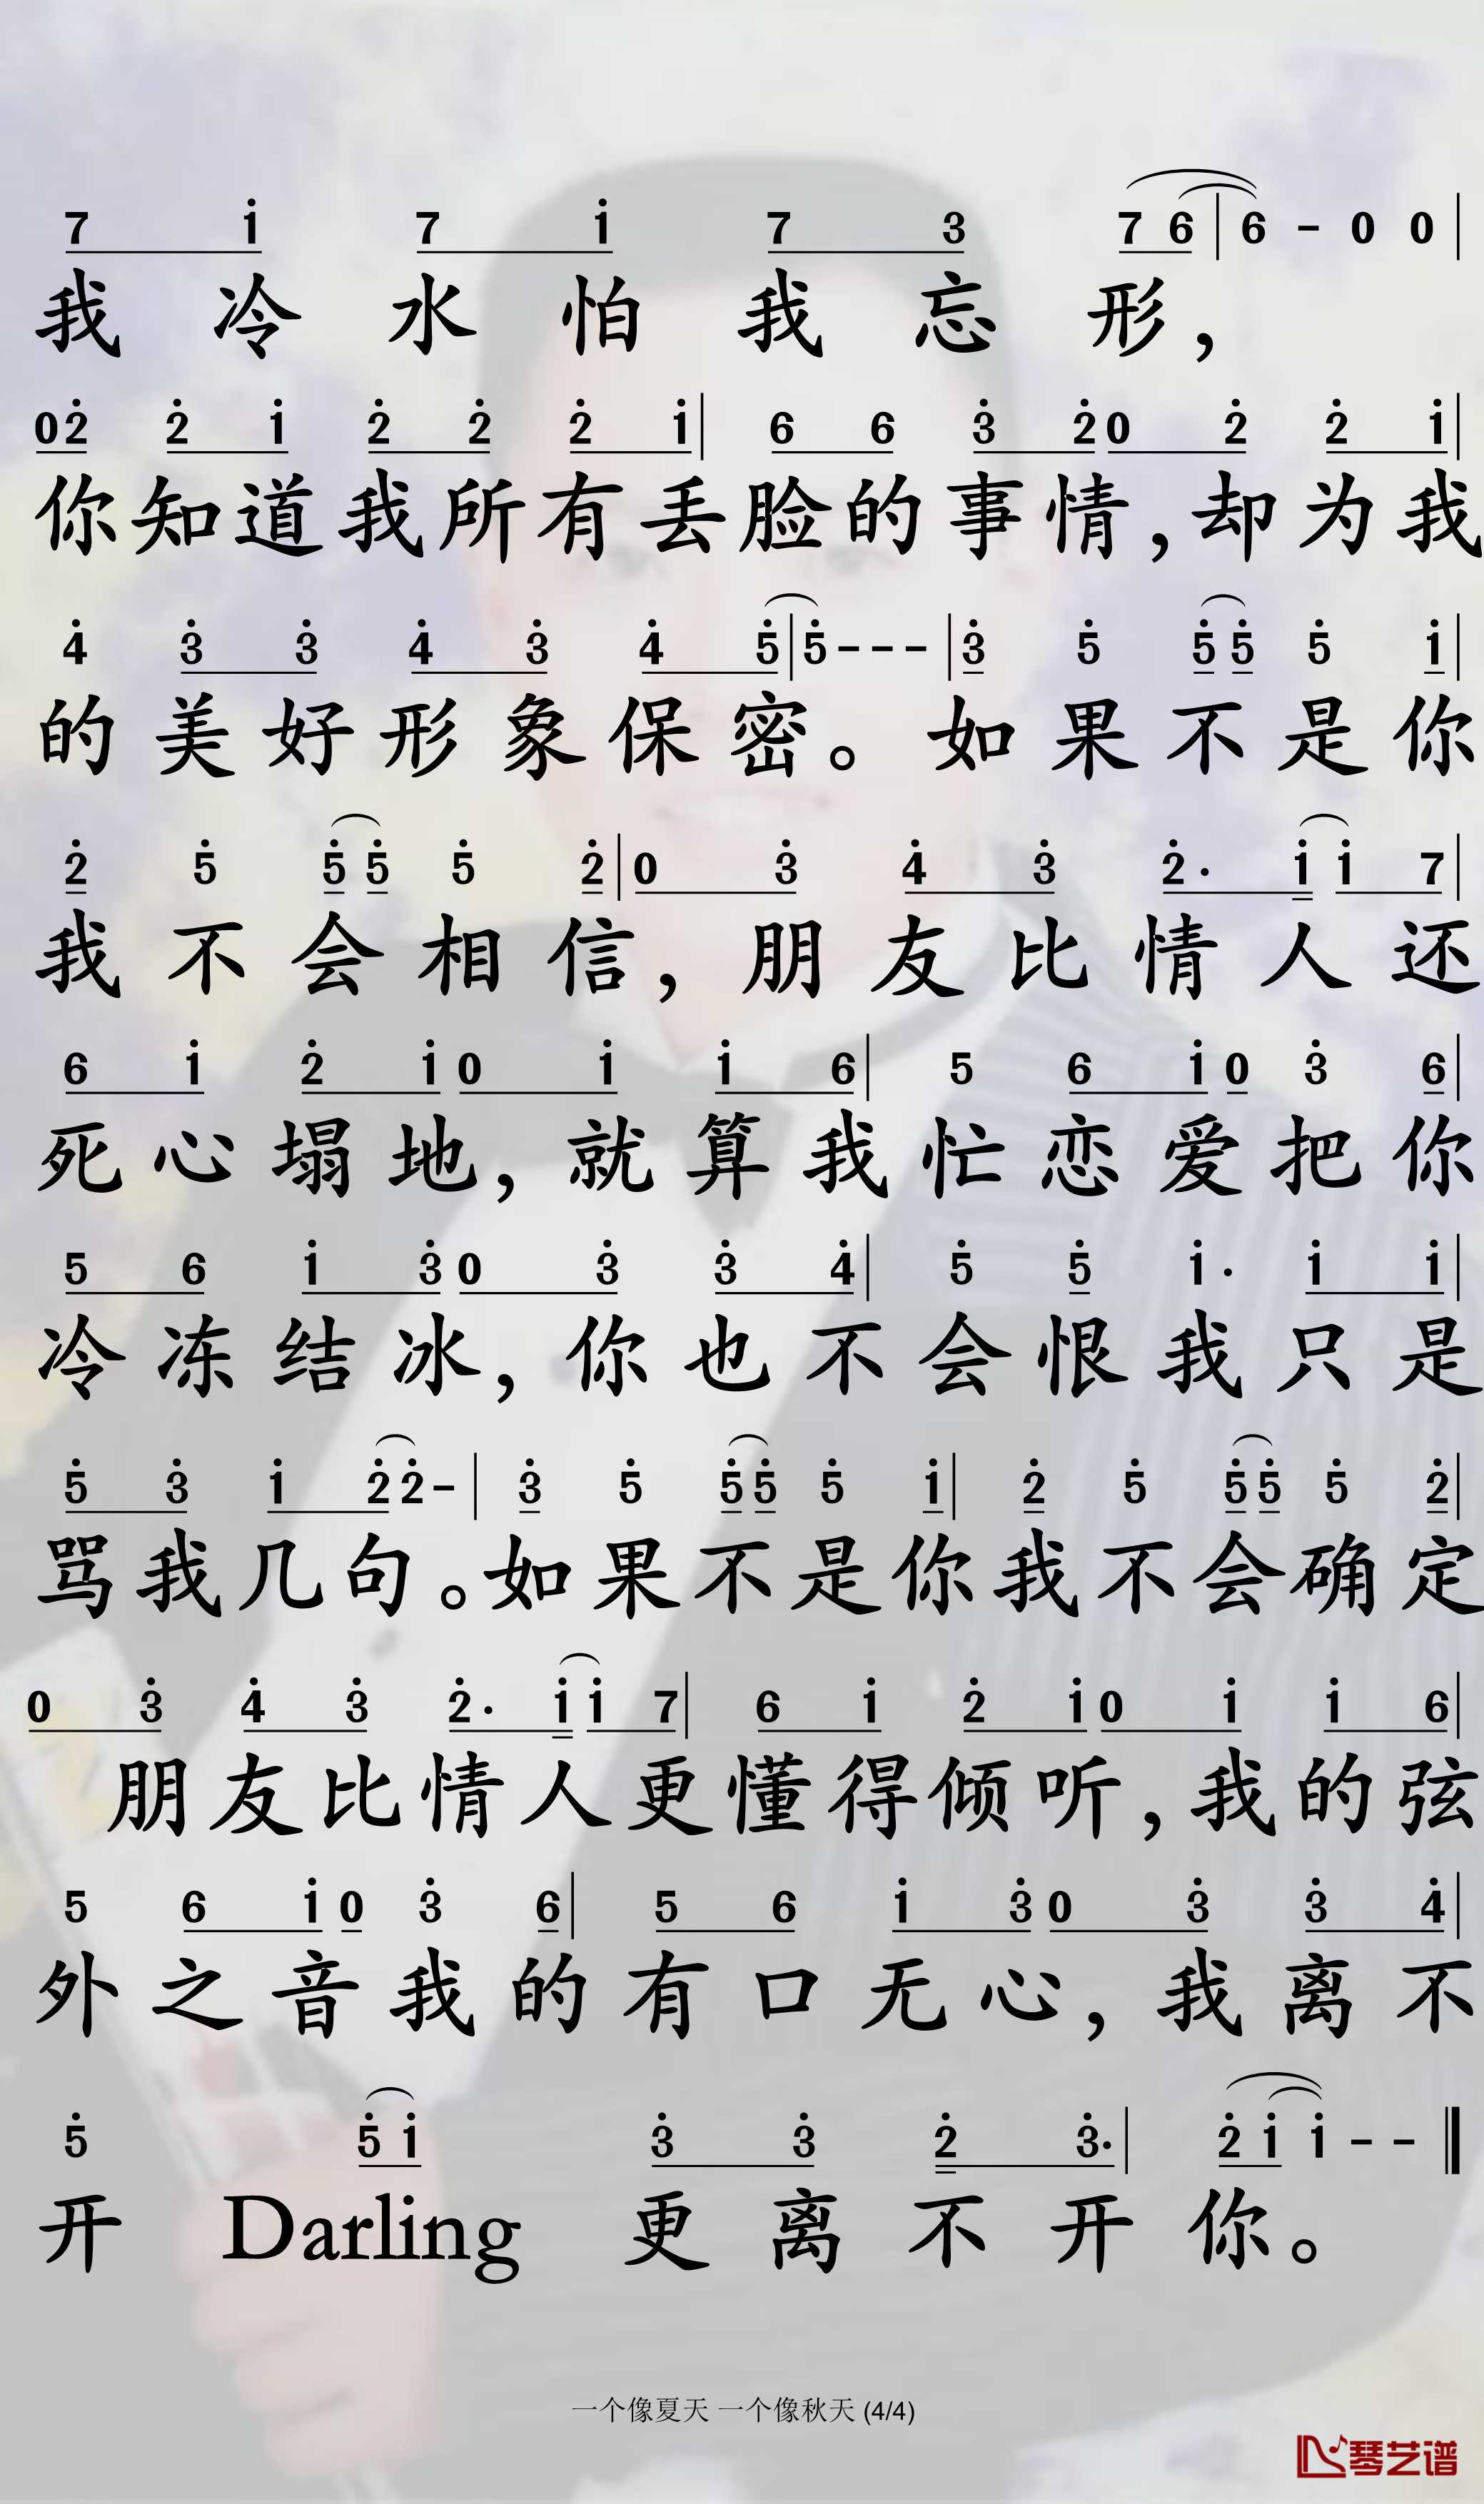 7 i 7 i 7 3 7 6 | 6 - 0 0 |
我冷水怕我忘形，
0 2 2 i 2 2 2 i | 6 6 3 2 0 2 2 i |
你知道我所有丢脸的事情，却为我
4 3 3 4 3 4 5 | 5 - - - | 3 5 5 5 5 i |
的美好形象保密。如果不是你
2 5 5 5 5 2 | 0 3 4 3 2 · i i 7 |
我不会相信，朋友比情人还
6 i 2 i 0 i i 6 | 5 6 i 0 3 6 |
死心塌地，就算我忙恋爱把你
5 6 i 3 0 3 3 4 | 5 5 i · i i |
冷冻结冰，你也不会恨我只是
5 3 i 2 2 - | 3 5 5 5 5 i | 2 5 5 5 5 2 |
骂我几句。如果不是你我不会确定
0 3 4 3 2 · i i 7 | 6 i 2 i 0 i i 6 |
朋友比情人更懂得倾听，我的弦
5 6 i 0 3 6 | 5 6 i 3 0 3 3 4 |
外之音我的有口无心，我离不
5 5 i 3 3 2 3 · | 2 i i - - ‖
开 Darling 更离不开你。
一个像夏天 一个像秋天 (4/4)
琴艺谱